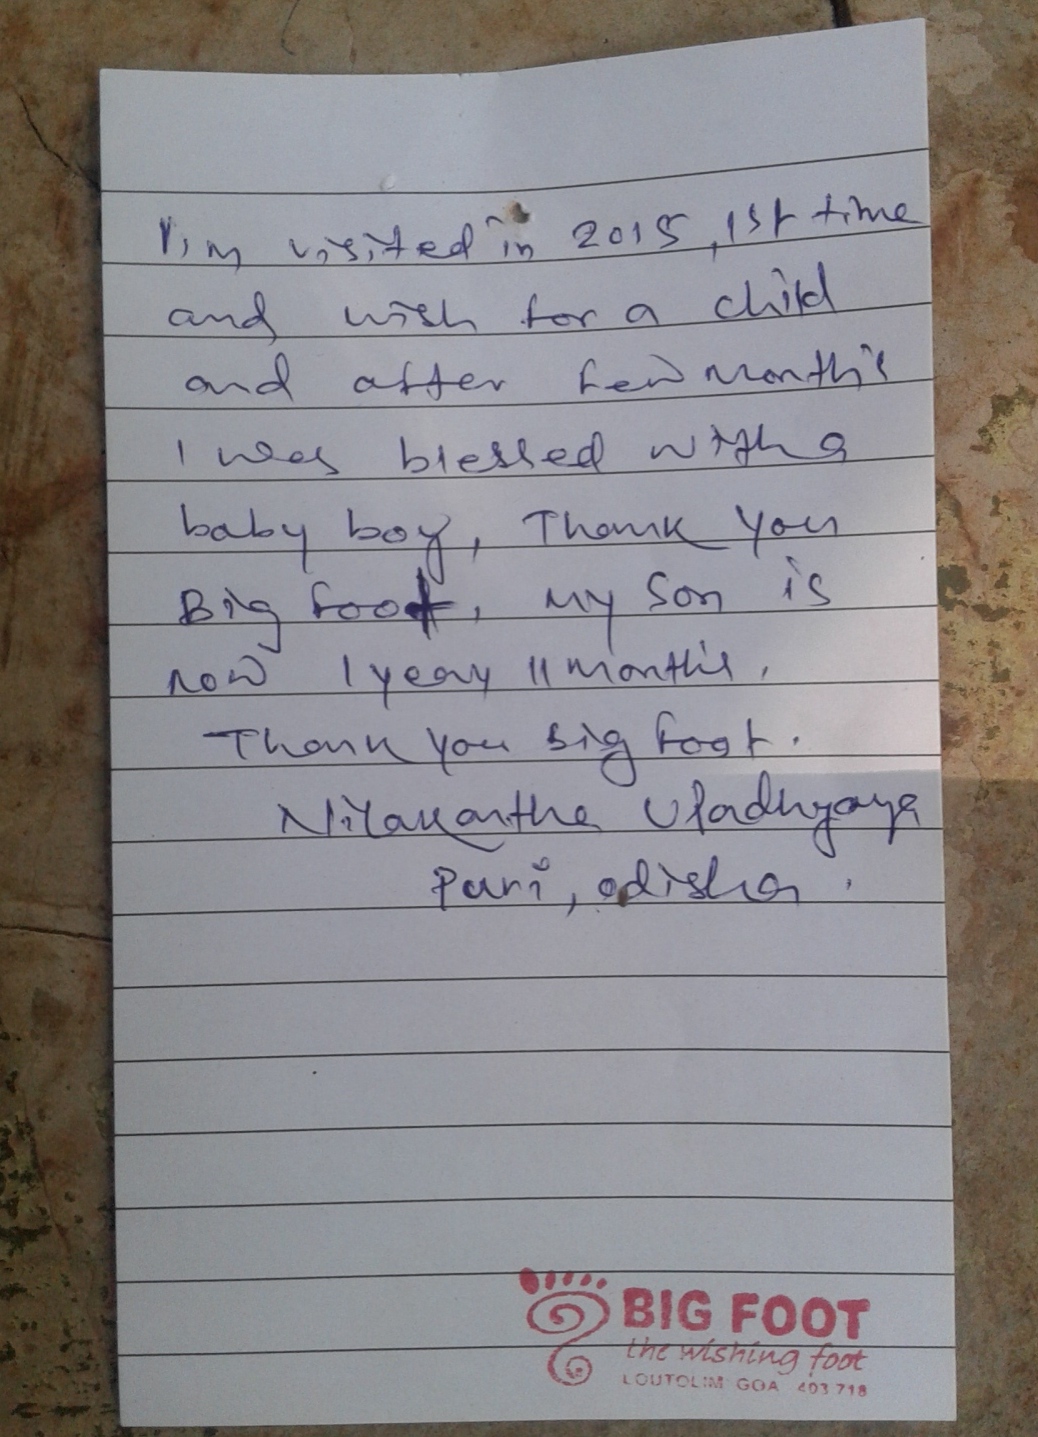 I'm visited in 2015, 1st time
and wish for a child
and after few month's
I was blessed with a
baby boy, Thank you
Big foot, my son is
now 1 year 11 month's,
Thank you Big foot.
Nilakantha Upadhyaya
Puri, odisha.
BIG FOOT
the wishing foot
LOUTOLIM GOA 403 718